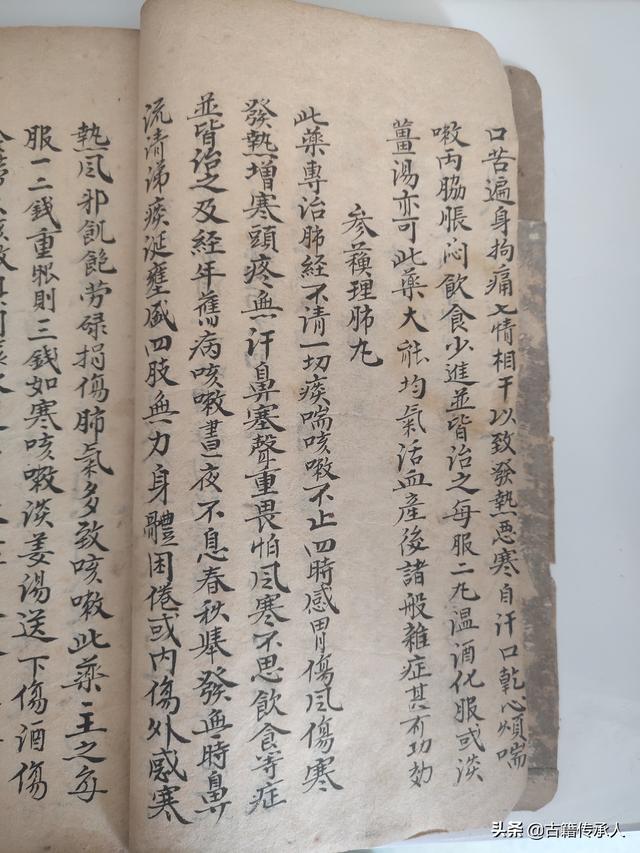 口苦遍身拘痛七情相干以致發熱惡寒自汗口乾心煩喘
嗽丙脇脹闷飲食少進並皆治之每服二九溫酒化服或淡
薑湯亦可此藥大能均氣活血產後諸般雜症甚有功效
参蘓理肺九
此藥專治肺經不请一切痰喘咳嗽不止四時感冐傷風傷寒
發熱增寒頭疼無汗鼻塞聲重畏怕風寒不思飲食等症
並皆治之及經年舊病咳嗽晝夜不息春秋舉發無時鼻
流清涕痰涎壅盛四肢無力身體困倦或内傷外感寒
熱風邪飢飽劳碌损傷肺氣多致咳嗽此藥一主之每
服一二錢重服則三錢如寒咳嗽淡姜湯送下傷酒傷
头条 @古籍传承人